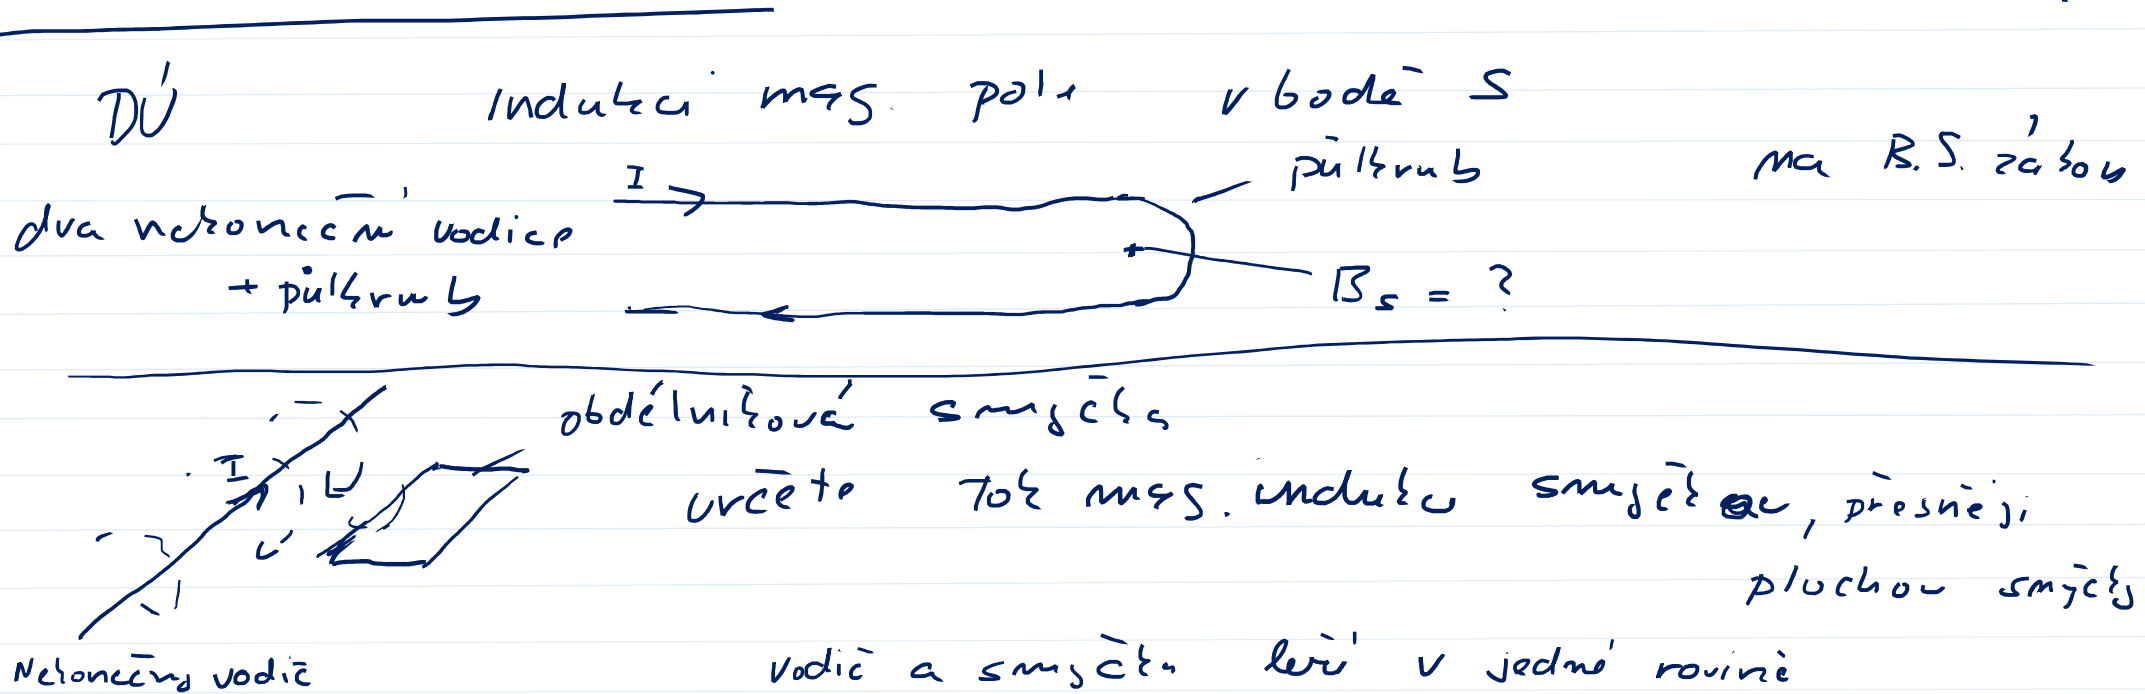 DÚ Indukci mag. pole v bodě S
půlkruh na B.S. zákon
I
dva nekoneční vodiče
+ půlkruh
B_S = ?
obdélníková smyčka
I
určete Tok mag. indukce smyčkou, přesněji
plochou smyčky
Nekonečný vodič vodič a smyčka leží v jedné rovině